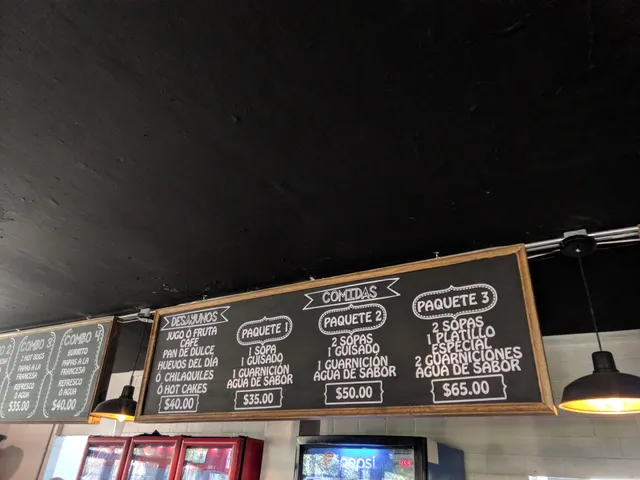 DESAYUNOS
JUGO O FRUTA
CAFE
PAN DE DULCE
HUEVOS DEL DIA
O CHILAQUILES
O HOT CAKES
$40.00
COMIDAS
PAQUETE 1
1 SOPA
1 GUISADO
1 GUARNICIÓN
AGUA DE SABOR
$35.00
PAQUETE 2
2 SOPAS
1 GUISADO
1 GUARNICIÓN
AGUA DE SABOR
$50.00
PAQUETE 3
2 SOPAS
1 PLATILLO
ESPECIAL
2 GUARNICIONES
AGUA DE SABOR
$65.00
COMBO 3
2 HOT DOGS
PAPAS A LA
FRANCESA
REFRESCO
O AGUA
$35.00
COMBO 4
BURRITO
PAPAS A LA
FRANCESA
REFRESCO
O AGUA
$40.00
pepsi